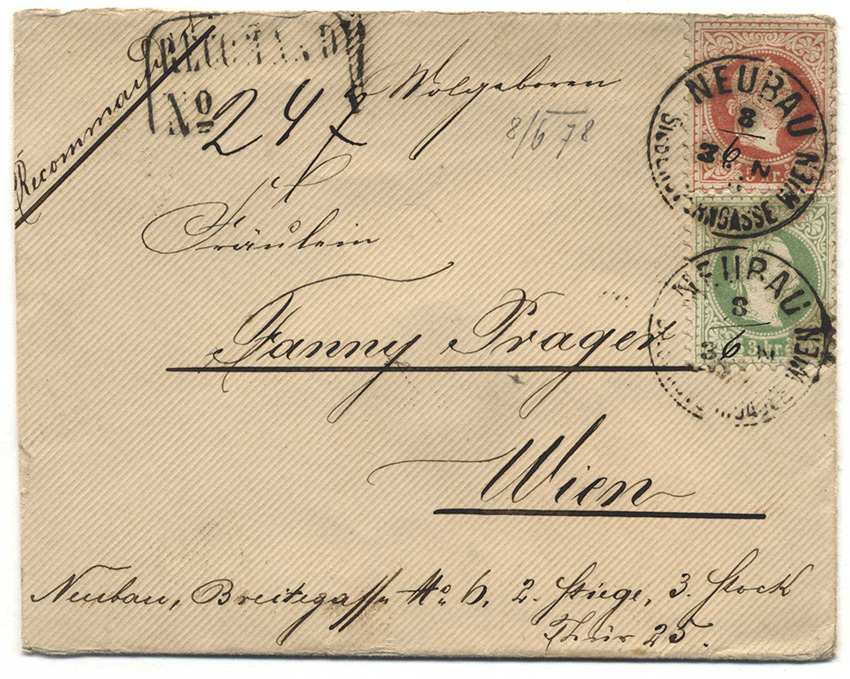 RECOMAND
No
247
Recommandirt
Wolgeboren
8/6 78
Fräulein
Fanny Prager
Wien
Neubau, Breitegasse No 6, 2. Stiege, 3. Stock
Thür 25.
NEUBAU
8
6
3 N
WIEN
kr.
NEUBAU
8
6
3 N
WIEN
3 kr.